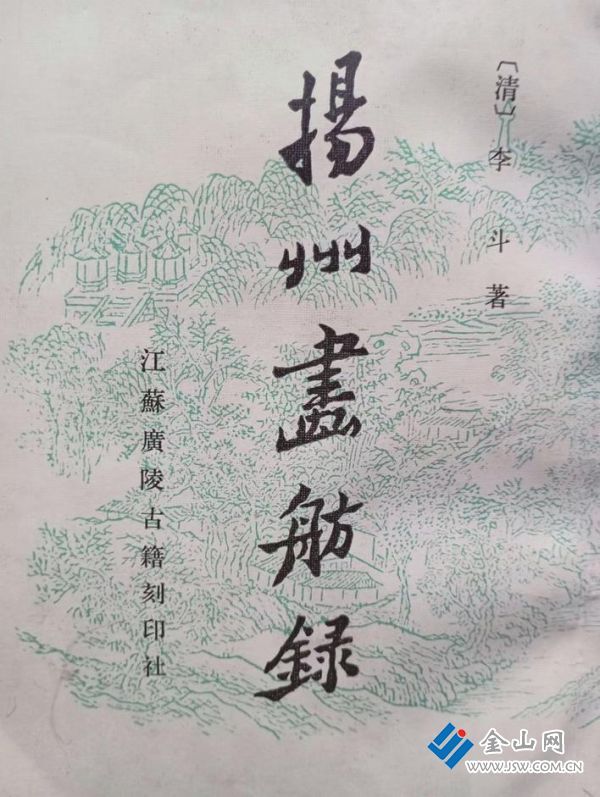 〔清〕李斗著
揚州畫舫録
江蘇廣陵古籍刻印社
金山网
WWW.JSW.COM.CN